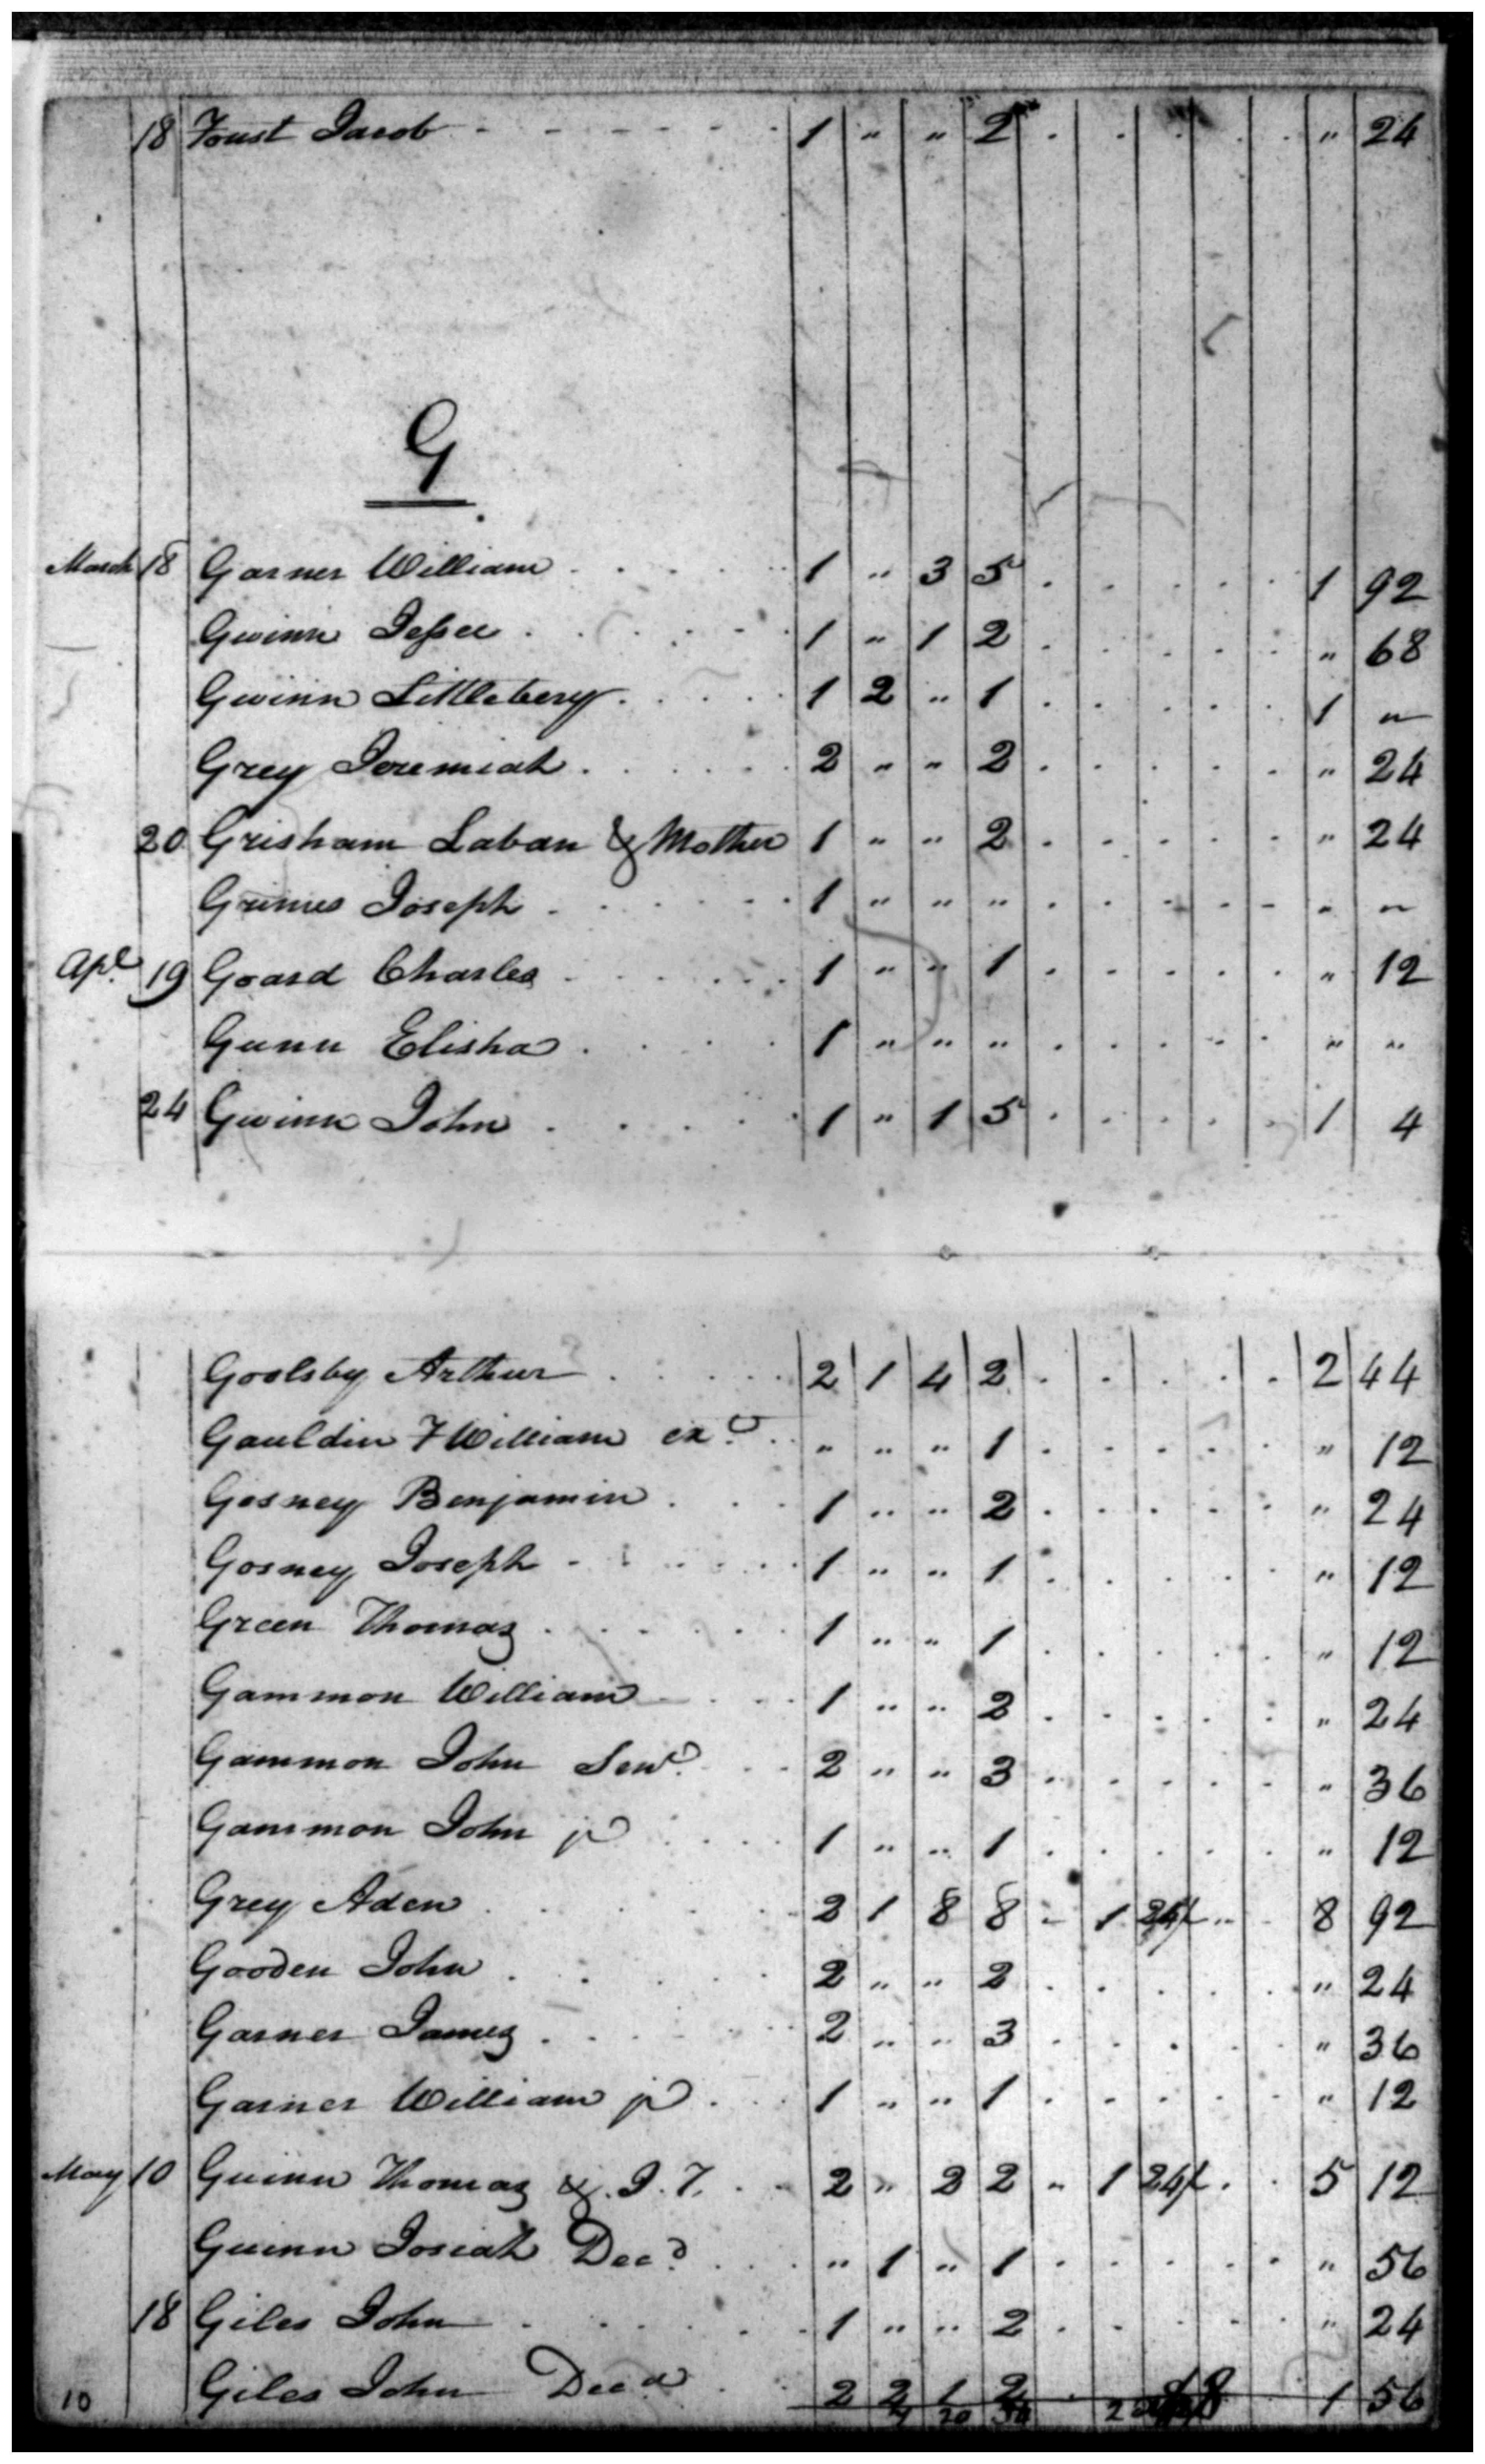 18 Foust Jacob - - - - - - 1 " " 2 . . . . . " 24
G
March 18 Garner William . . . . 1 " 3 5 . . . . . 1 92
Gwinn Jessee . . . . . 1 " 1 2 . . . . . " 68
Gwinn Littlebery . . . . 1 2 " 1 . . . . . 1 "
Grey Jeremiah . . . . . 2 " " 2 . . . . . " 24
20 Grisham Laban & Mother 1 " " 2 . . . . . " 24
Grimes Joseph . . . . . 1 " " " . . . . . " "
Apl 19 Goard Charles . . . . 1 " " 1 . . . . . " 12
Gunn Elisha . . . . 1 " " " . . . . . " "
24 Gwinn John . . . . 1 " 1 5 . . . . . 1 4
Goolsby Arthur . . . . 2 1 4 2 . . . . . 2 44
Gauldin F William exr . . " " " 1 . . . . . " 12
Gosney Benjamin . . . 1 " " 2 . . . . . " 24
Gosney Joseph - . . . . 1 " " 1 . . . . . " 12
Green Thomas . . . . . 1 " " 1 . . . . . " 12
Gammon William . . . 1 " " 2 . . . . . " 24
Gammon John Senr . . . 2 " " 3 . . . . . " 36
Gammon John jr . . . . 1 " " 1 . . . . . " 12
Grey Aden . . . . . 2 1 8 8 - 1 " . 8 92
Gooden John . . . . . 2 " " 2 . . . . . " 24
Garner James . . . . . 2 " " 3 . . . . . " 36
Garner William jr . . . 1 " " 1 . . . . . " 12
May 10 Guinn Thomas & J. T. . . 2 " 2 2 " 1 24/ . . 5 12
Guinn Josiah Decd . . . " 1 " 1 . . . . . " 56
18 Giles John . . . . . 1 " " 2 . . . . . " 24
10 Giles John Decd . . 2 2 1 2 . 1 56
20 2